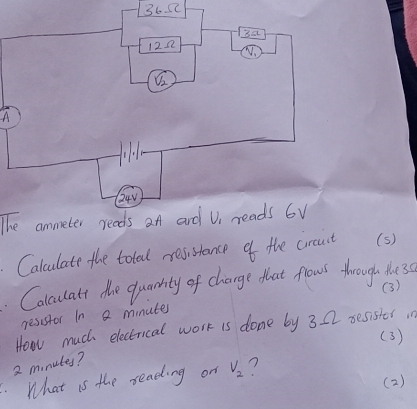 36 Ω
12 Ω
3Ω
V₁
V₂
A
24V
The ammeter reads 2A and V₁ reads 6V
Calculate the total resistance of the circuit (5)
Calculate the quantity of charge that flows through the 3Ω
resistor in 2 minutes (3)
How much electrical work is done by 3Ω resistor in
2 minutes? (3)
What is the reading on V₂? (2)